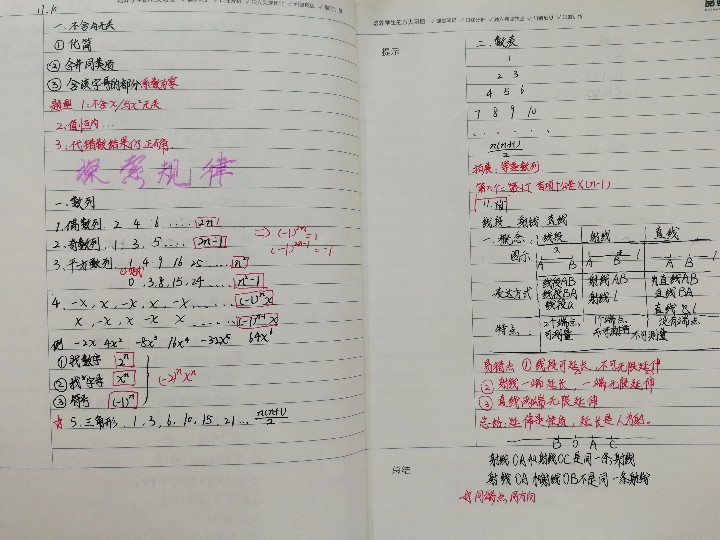 12.10
一.不含与无关
① 化简
② 合并同类项
③ 含该字母的部分系数为零
题型 1.不含x/与x²无关
2.值恒为...
3.代错数结果仍正确.
探索规律
一.数列
1.偶数列. 2 4 6 ..... 2n
2.奇数列. 1 3, 5 .... 2n-1
⇒ (-1)²ⁿ=1
(-1)²ⁿ⁻¹=-1
3.平方数列. 1, 4 9 16 25 ..... n²
0, 3, 8, 15, 24 ...... n²-1
4. -x, x, -x, x, -x ...... (-1)ⁿx
x, -x, x -x x ...... (-1)ⁿ⁺¹x
例 -2x 4x² -8x³ 16x⁴ -32x⁵ 64x⁶
① 找数字 2ⁿ
② 找字母 xⁿ
③ 符号 (-1)ⁿ
(-2)ⁿxⁿ
5.三角形. 1, 3, 6, 10, 15, 21 ... n(n+1)/2
提示
二.数表
1
2 3
4 5 6
7 8 9 10
. . . . . .
n(n+1)/2
拓展:等差数列.
第n个:第1个 首项+公差×(n-1)
线段、射线、直线
一.概念: 线段 射线 直线
图示 A B A B A B
表达方式 线段AB 射线AB 直线AB
线段BA 射线 l 直线BA
线段a 直线 l
特点: 2个端点 1个端点 没有端点
可测量 不可测量 不可测量
易错点 ① 线段可延长,不可无限延伸
② 射线一端延长,一端无限延伸
③ 直线两端无限延伸
总结:延伸是性质,延长是人为的。
B O A C
射线OA和射线OC是同一条射线
射线OA和射线OB不是同一条射线
同端点,同方向
总结